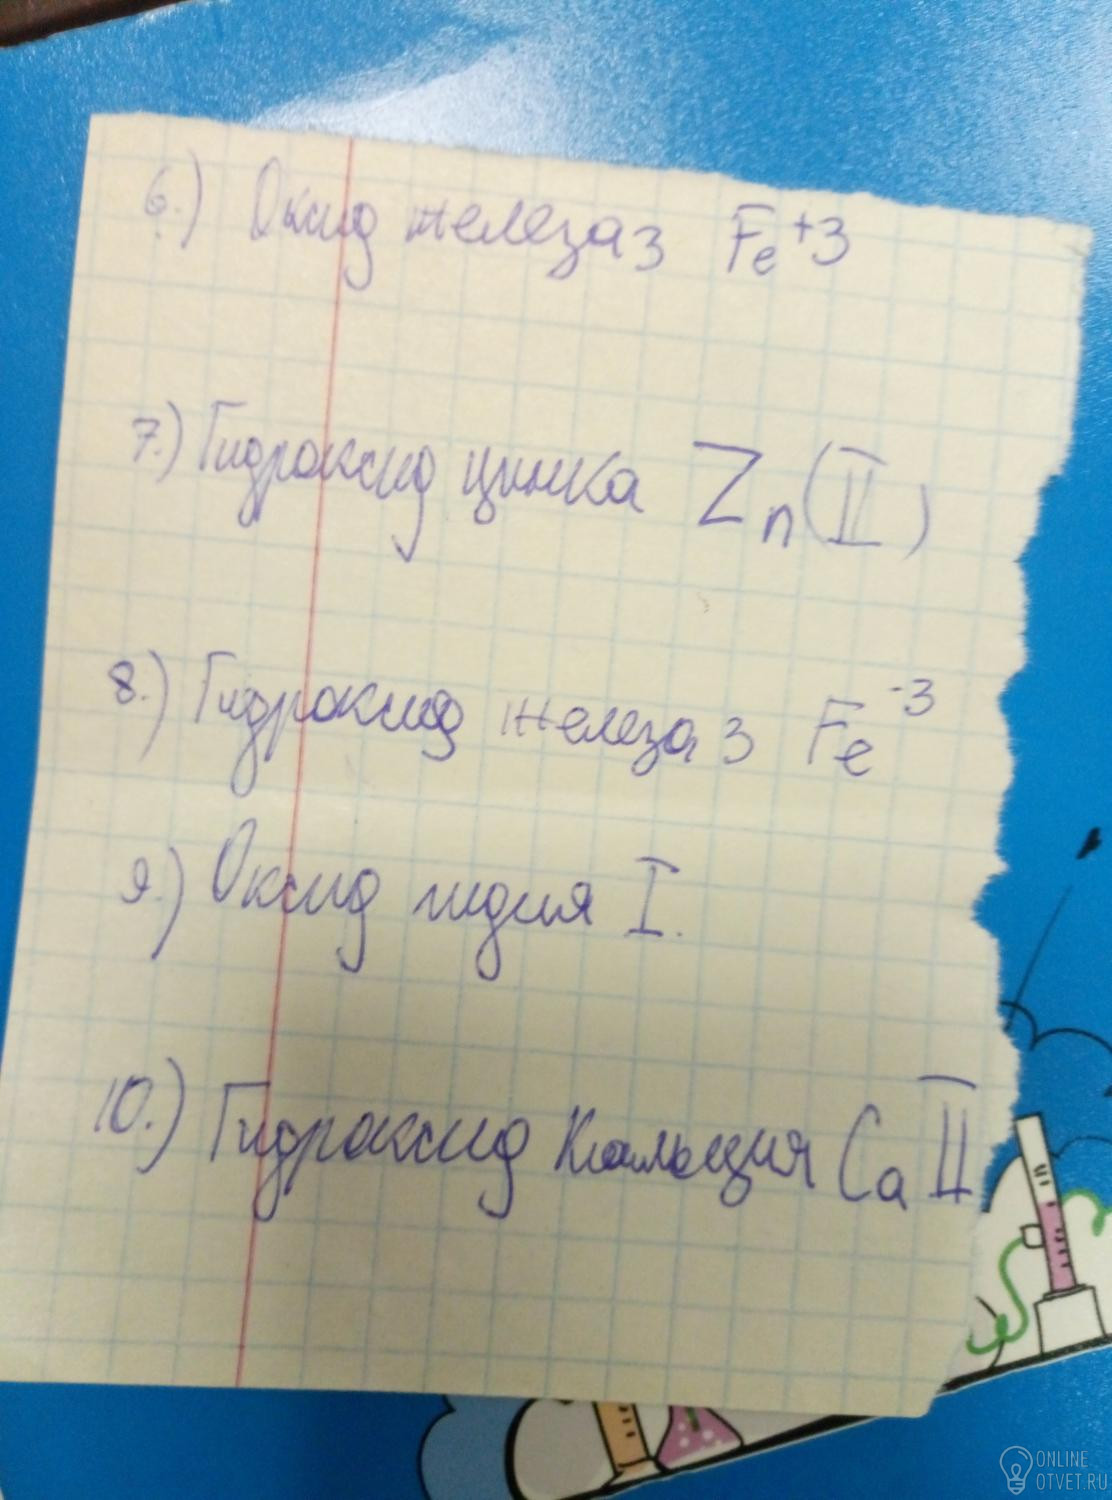 6.) Оксид железа 3 Fe+3
7.) Гидроксид цинка Zn(II)
8.) Гидроксид железа 3 Fe-3
9.) Оксид лидия I.
10.) Гидроксид кальция Ca II
ONLINE
OTVET.RU